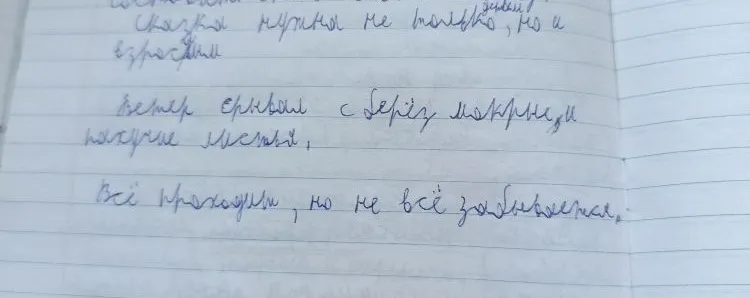 сказка нужна не только детям, но и
взрослым
Ветер срывал с берёз мокрые, и
пахучие листья,
Всё проходит, но не всё забывается.